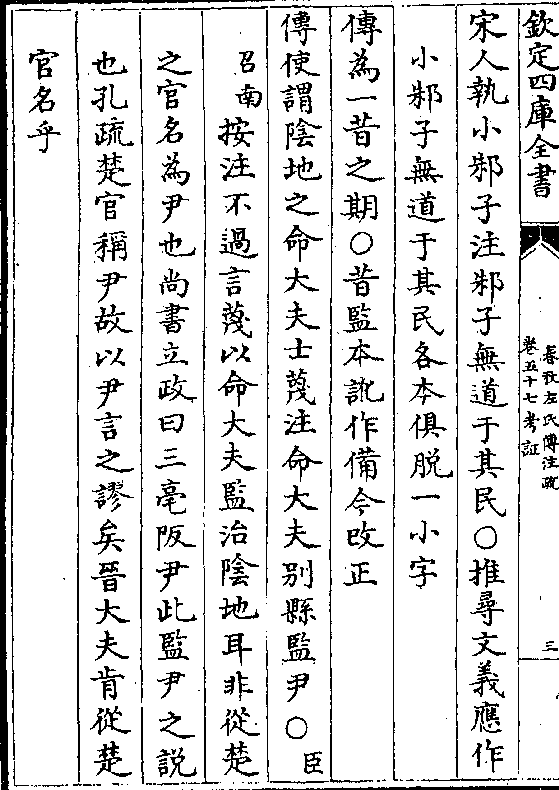 欽定四庫全書
春秋左氏傳注疏
卷五十七考証
三
宋人執小邾子注邾子無道于其民○推尋文義應作
小邾子無道于其民各本俱脱一小字
傳為一昔之期○昔監本訛作備今改正
傳使謂陰地之命大夫士蔑注命大夫别縣監尹○臣
召南按注不過言蔑以命大夫監治陰地耳非從楚
之官名為尹也尚書立政曰三亳阪尹此監尹之説
也孔疏楚官稱尹故以尹言之謬矣晉大夫肯從楚
官名乎